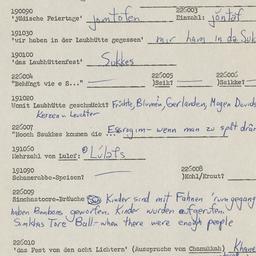 190090 226003
'jüdische Feiertage' jomtofen Einzahl: jontaf
191030
'wir haben in der Laubhütte gegessen' mir ham in da Suk
190100
'das Laubhüttenfest' Sukkes
226004 226005 226006
"Behängt wie e S..." )Seik? )Saikke?
191020
Womit Laubhütte geschmückt? Früchte, Blumen, Gerlanden, Mogen Davids
Kerzen u. Leuchter
226007
"Nooch Sukkes kommen die Essrogim - wenn man zu spät drän
191050
Mehrzahl von Lulef: Lúlafs
191090 226008
Schamerabbe-Speisen? )Kohl/Kraut?
226009
Simchastoore-Bräuche Kinder sind mit Fahnen 'rumgegang
haben Bonbons geworfen. Kinder wurden aufgerufen.
Simches Tore Ball - when there were enough people
226010
'das Fest von den acht Lichtern' (Aussprache von Chanukkah)